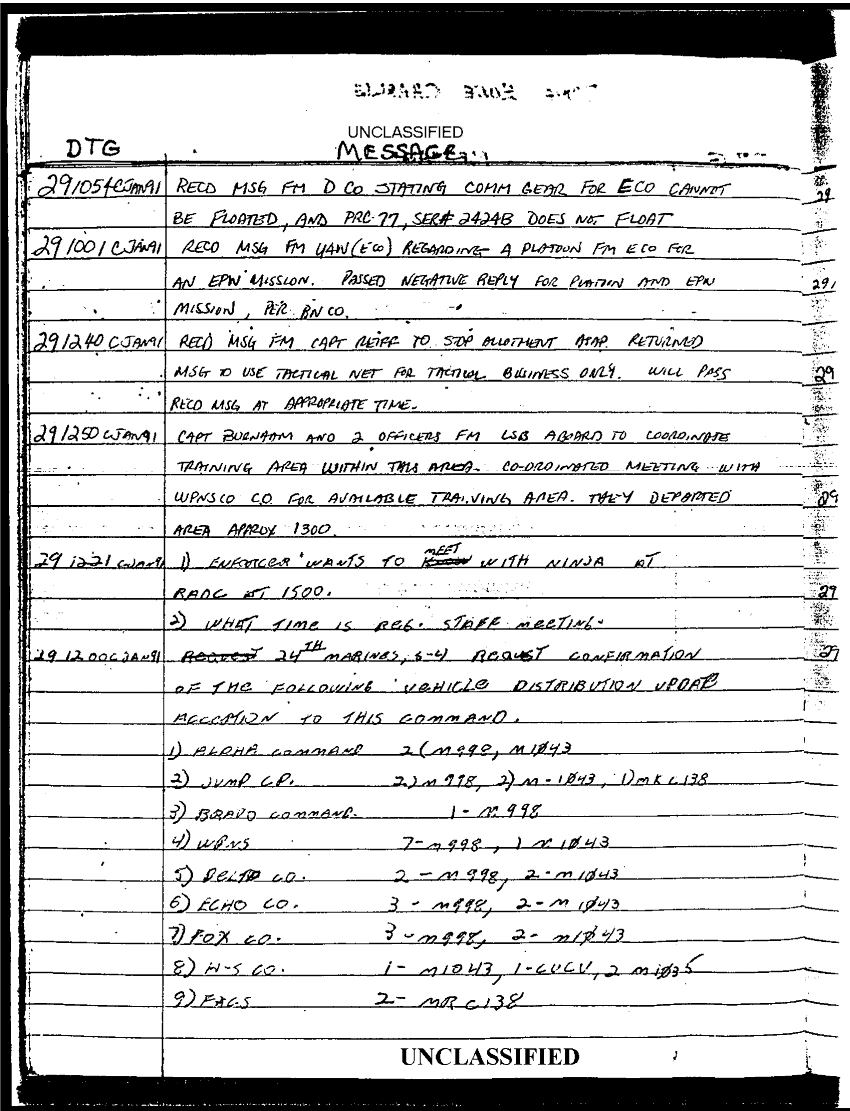 UNCLASSIFIED
DTG MESSAGE
291054CJAN91 RECD MSG FM D CO STATING COMM GEAR FOR ECO CANNOT
BE FLOATED, AND PRC-77, SER# 2424B DOES NOT FLOAT
291001CJAN91 RECD MSG FM (ECO) REGARDING A PLATOON FM ECO FOR
AN EPW MISSION. PASSED NEGATIVE REPLY FOR PLATOON AND EPW
MISSION, PER BN CO.
291240CJAN91 RECD MSG FM CAPT REIFF TO STOP ALLOTMENT ASAP. RETURNED
MSG TO USE TACTICAL NET FOR TACTICAL BUSINESS ONLY. WILL PASS
RECD MSG AT APPROPRIATE TIME.
291250CJAN91 CAPT BURNHAM AND 2 OFFICERS FM LSB ABOARD TO COORDINATE
TRAINING AREA WITHIN THIS AREA. CO-ORDINATED MEETING WITH
WPNSCO C.O. FOR AVAILABLE TRAINING AREA. THEY DEPARTED
AREA APPROX 1300.
291221CJAN91 1) ENFORCER WANTS TO MEET WITH NINJA AT
RADC AT 1500.
2) WHAT TIME IS REG. STAFF MEETING.
291200CJAN91 REQUEST 24TH MARINES, S-4) REQUST CONFIRMATION
OF THE FOLLOWING VEHICLE DISTRIBUTION UPDATE
TO THIS COMMAND.
1) ALPHA COMMAND 2(M998, M1043
2) JUMP C.P. 2)M998, 2)M-1043, 1)MRC138
3) BRAVO COMMAND. 1-M998
4) WPNS 7-M998, 1 M1043
5) DELTA CO. 2-M998, 2-M1043
6) ECHO CO. 3-M998, 2-M1043
7) FOX CO. 3-M998, 2-M1043
8) H-S CO. 1-M1043, 1-CUCV, 2 M1035
9) FACS 2-MRC138
UNCLASSIFIED